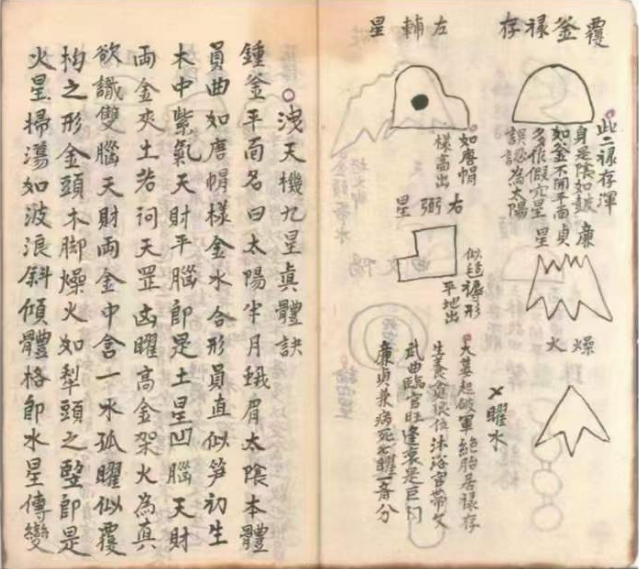 覆釜禄存
此二禄存渾
身是陰如皷
如釜不開平面
多作假穴星
誤認為太陽
廉貞星
燥火
曜水
左輔星
如唐帽
樣高出
右弼星
似毡褥形
平地出
大墓起破軍絶胎居禄存
生養貪狼位沐浴官帶文
武曲臨官旺逢衰是巨門
廉貞兼病死七曜一齊分
洩天機九星眞體訣
鍾釜平面名曰太陽半月蛾眉太陰本體
員曲如唐帽樣金水合形員直似笋初生
木中紫氣天財平腦即是土星凹腦天財
兩金夾土若祠天罡凶曜高金架火為真
欲識雙腦天財兩金中含一水孤曜似覆
杓之形金頭木脚燥火如犁頭之竪即是
火星掃蕩如波浪斜傾體格即水星傳變